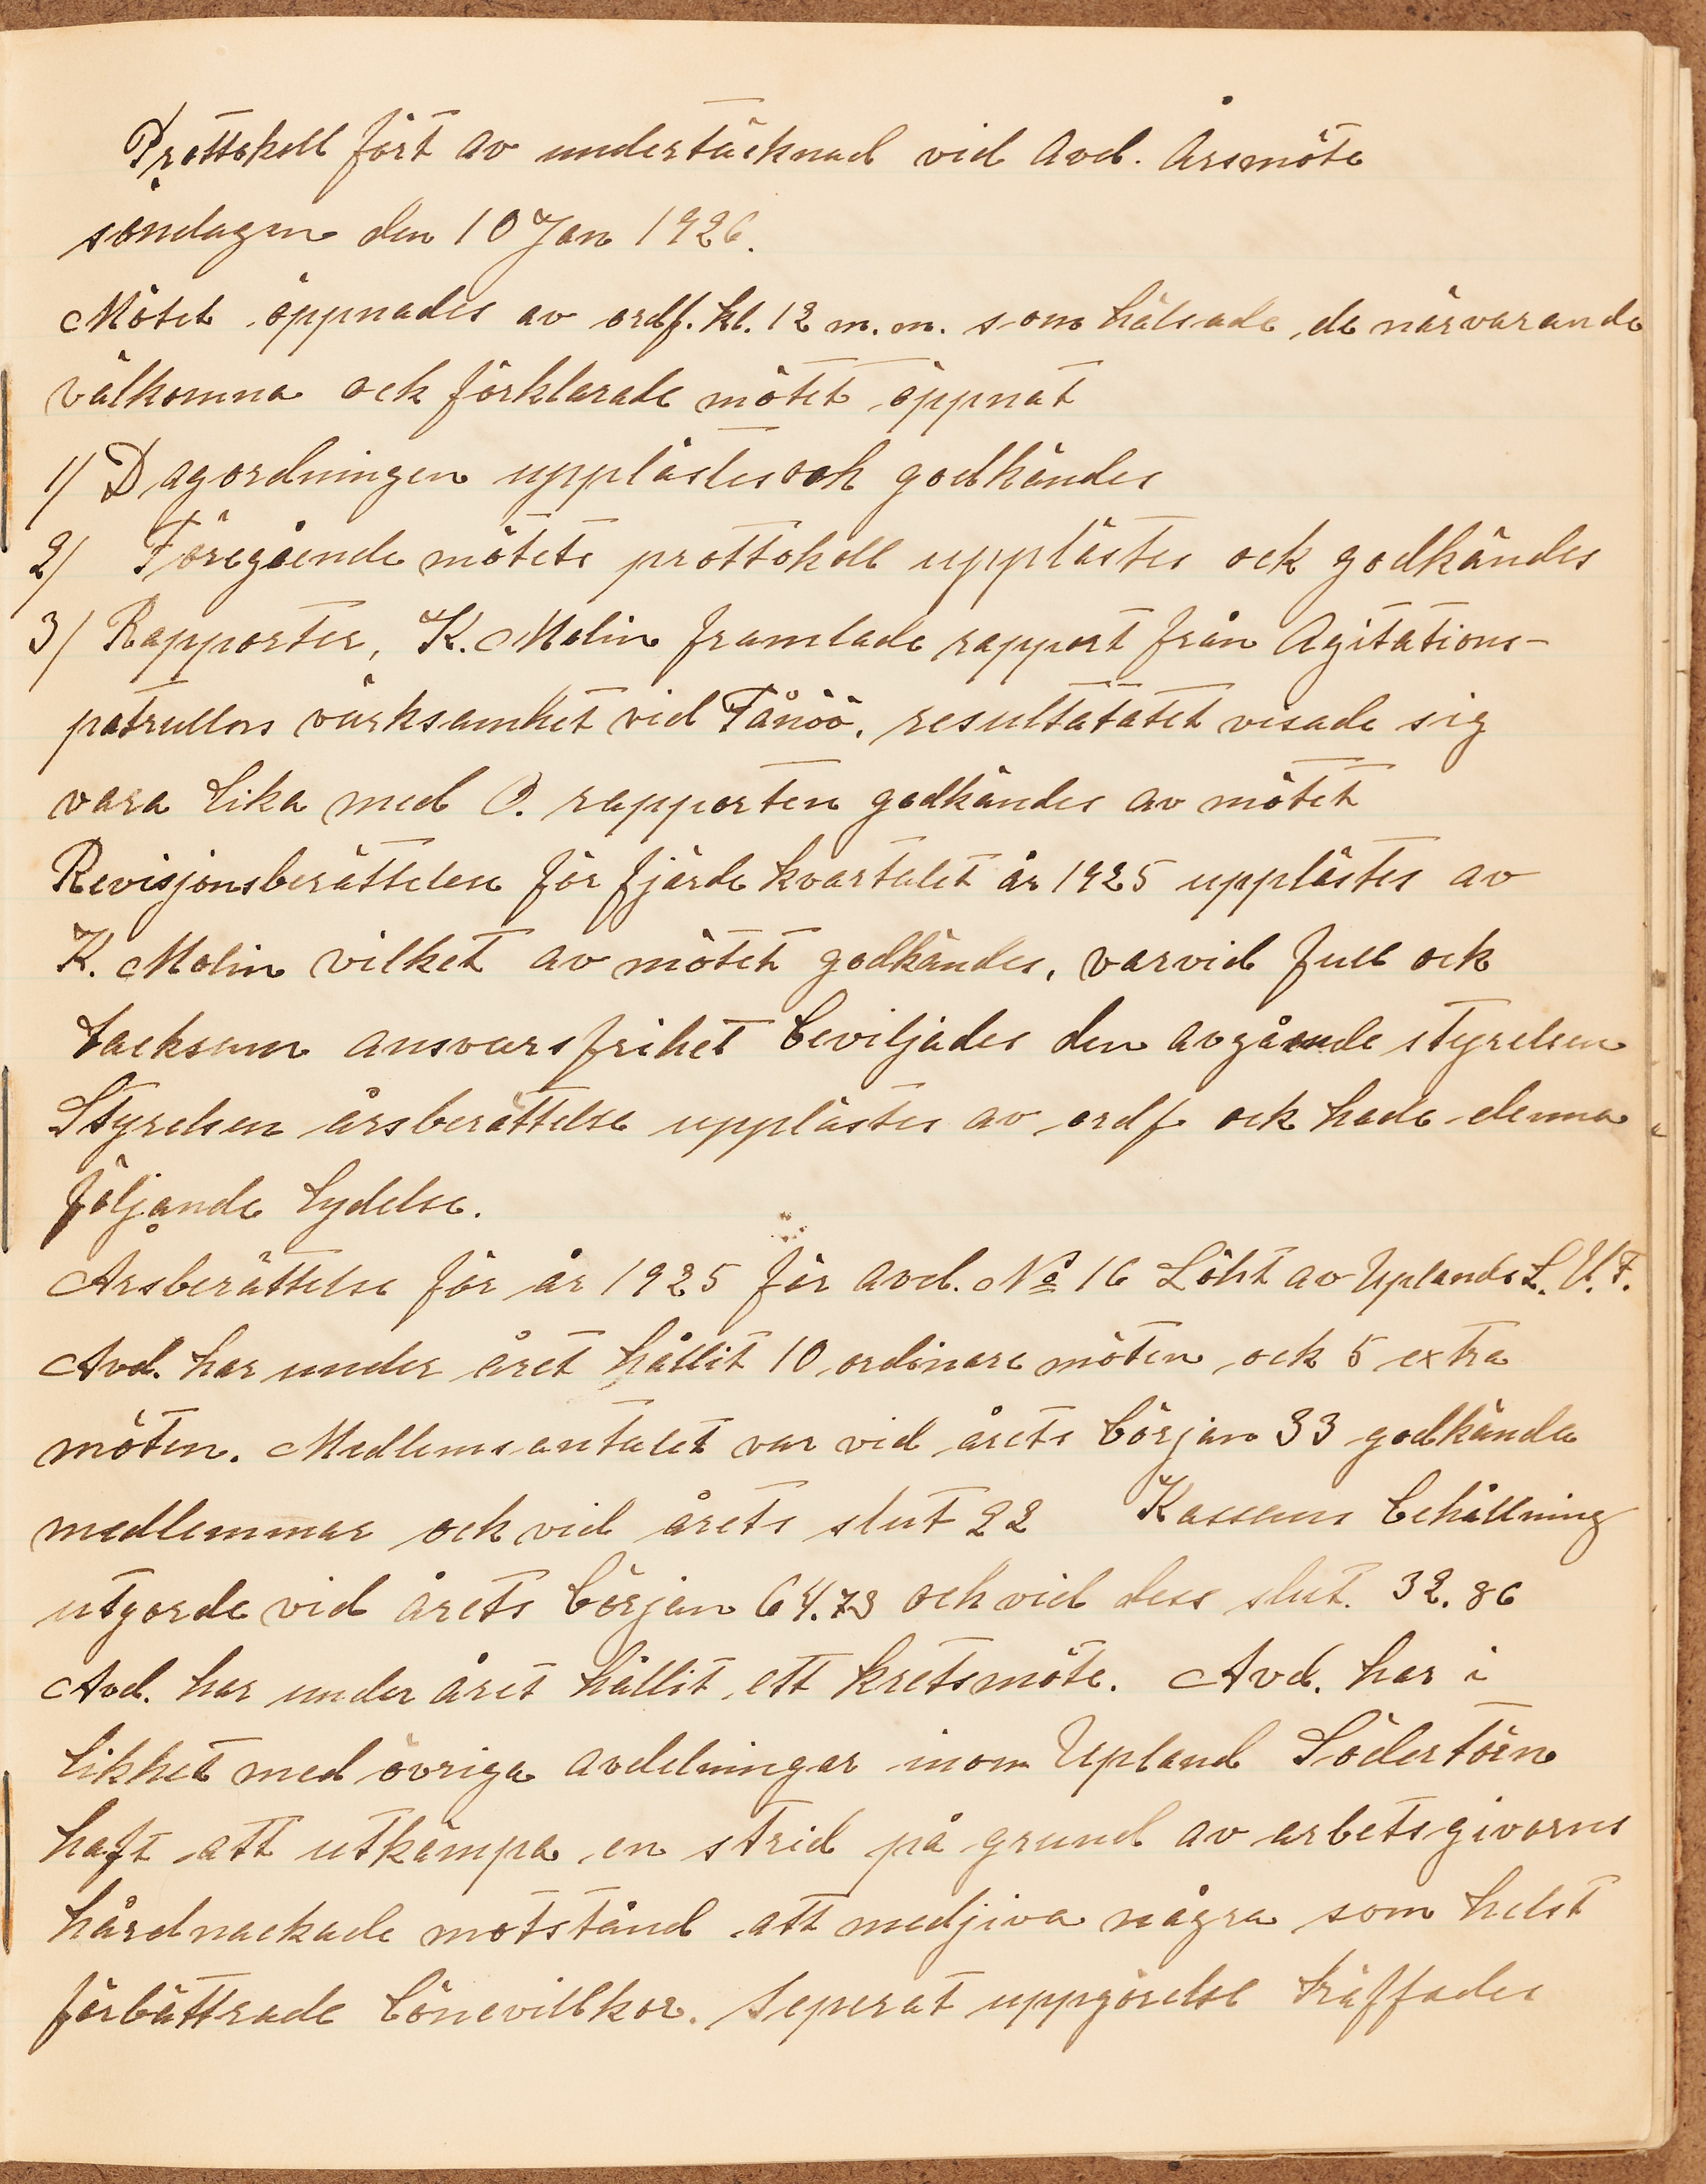 Prottokoll fört av undertäcknad vid Avd. Årsmöte
söndagen den 10 Jan 1926.
Mötet öppnades av ordf. kl. 12 m.m. som hälsade de närvarande
välkomna ock förklarade mötet öppnat
1/ Dagordningen upplästes ock godkändes
2/ Föregående mötets prottokoll upplästes ock godkändes
3/ Rapporter, K. Molin framlade rapport från Agitations-
patrullens värksamhet vid Fånöö, resultatatet visade sig
vara lika med O. rapporten godkändes av mötet
Revisjonsberättelsen för fjärde kvartalet år 1925 upplästes av
K. Molin vilket av mötet godkändes, varvid full ock
tacksam ansvarsfrihet beviljades den avgående styrelsen
Styrelsen årsberättelse upplästes av ordf ock hade denna
följande lydelse.
Årsberättelse för år 1925 för avd. No 16 Löht av Uplands L. U. F.
Avd. har under året hållit 10 ordinare möten ock 5 extra
möten. Medlemsantalet var vid årets början 33 godkända
medlemmar ock vid årets slut 22 Kassans behållning
utgorde vid årets början 64.73 ock vid dess slut. 32.86
Avd. har under året hållit ett kretsmöte. Avd. har i
likhet med övriga avdelningar inom Upland Södertörn
haft att utkämpa en strid på grund av arbetsgivarns
hårdnackade motstånd att medjiva några som helst
förbättrade lönevillkor. Seperat uppgörelse träffades